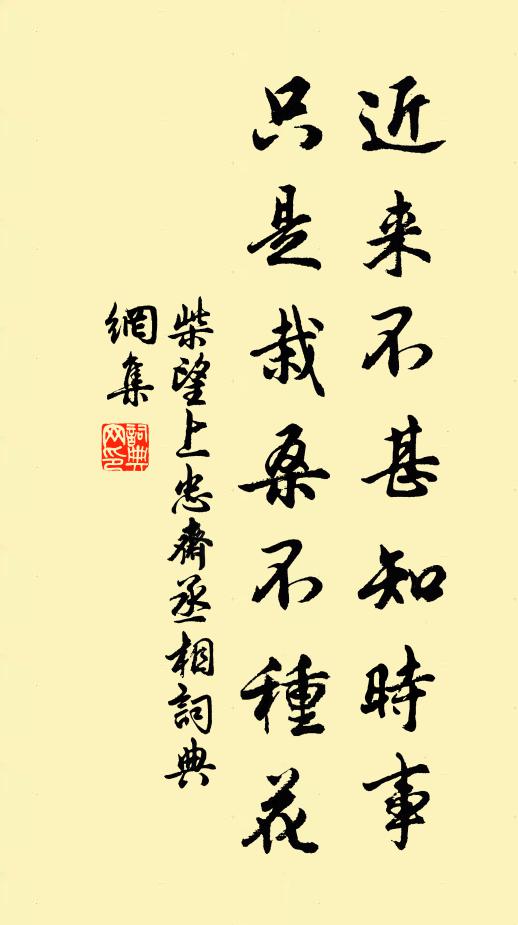 近来不甚知時事
只是栽桑不種花
柴望上忠齋丞相詞典
網集
詞典网印